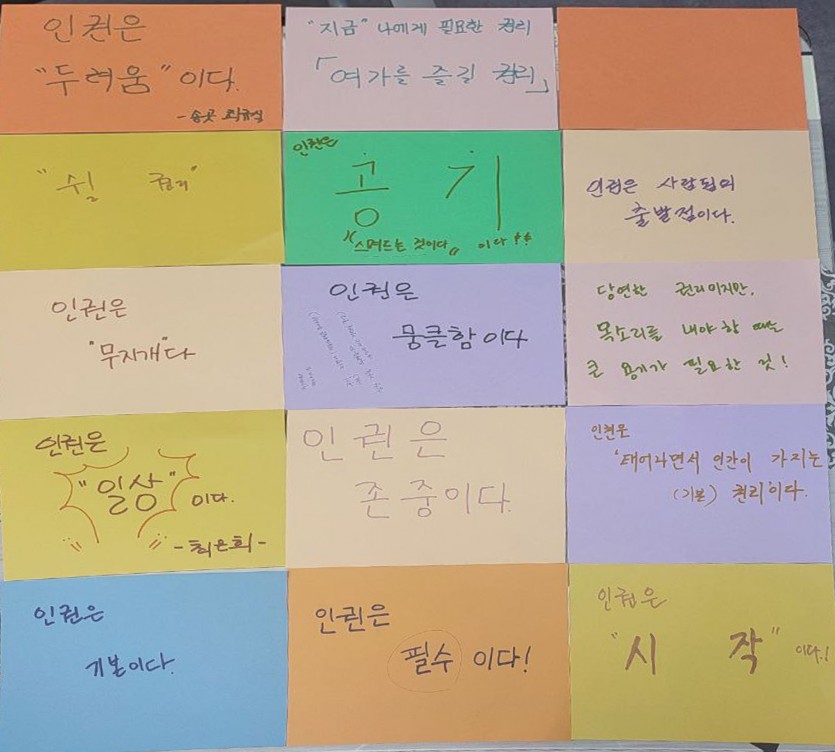 인권은
"두려움"이다.
"지금" 나에게 필요한 권리
「여가를 즐길 권리」
"쉴 권리"
인권은
공기
"스며드는 것이다" 이다!!
인권은 사람됨의
출발점이다.
인권은
"무지개"다
인권은
뭉클함이다
당연한 권리이지만,
목소리를 내야할 때는
큰 용기가 필요한 것!
인권은
"일상"이다.
-최은희-
인권은
존중이다.
인권은
'태어나면서 인간이 가지는
(기본) 권리'이다.
인권은
기본이다.
인권은
필수이다!
인권은
"시작"이다.!